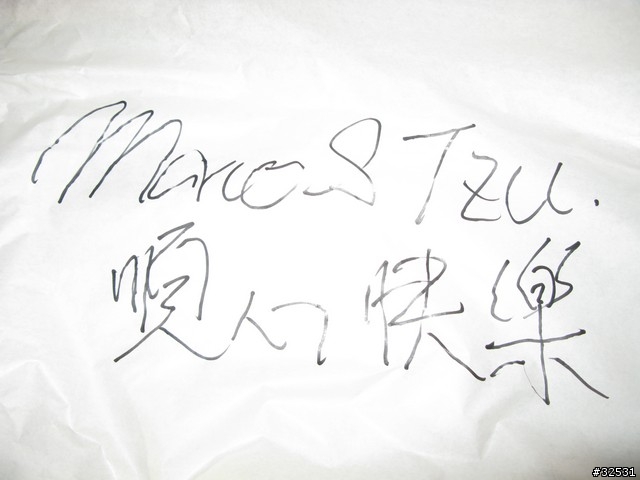 Marcos Tzu.
順心快樂
#32531